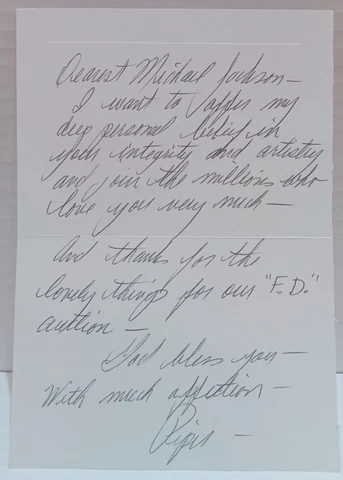 Dearest Michael Jackson—
I want to offer my
deep personal belief in
your integrity and artistry
and join the millions who
love you very much—
And thanks for the
lovely things for our "F.D."
auction —
God bless you—
With much affection —